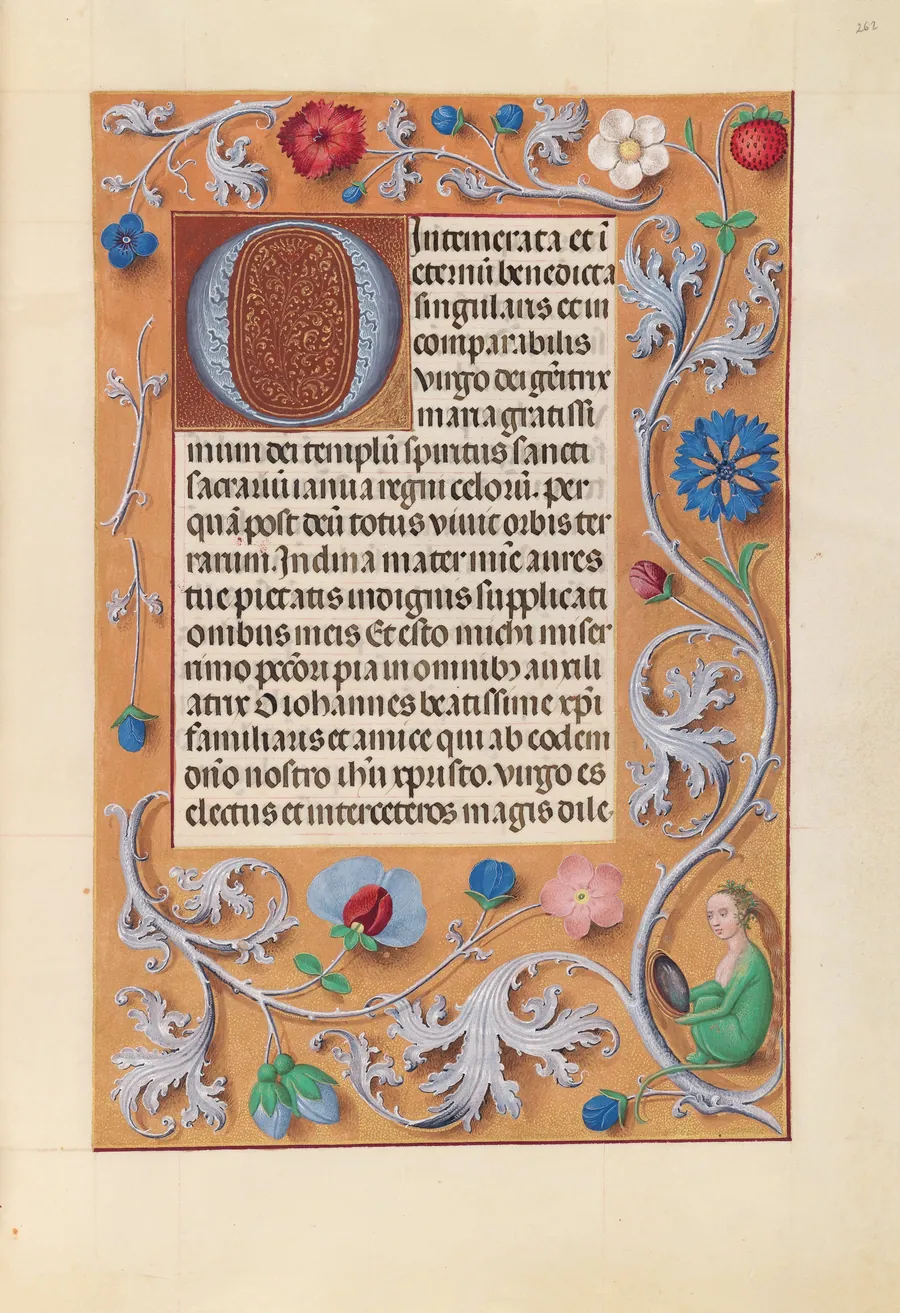 262
O Intemerata et ī
eternū benedicta
singularis et in
comparabilis
virgo dei gēitrix
maria gratissi
mum dei templū spiritus sancti
sacrariū ianua regni celorū. Per
quā post deū totus vivit orbis ter
rarum. Inclina mater mīe aures
tue pietatis indignis supplicati
onibus meis Et esto michi miser
rimo pccōri pia in omnibꝫ auxili
atrix O iohannes beatissime xpī
familiaris et amice qui ab eodem
dn̄o nostro ihū xpristo. virgo es
electus et interceteros magis dile